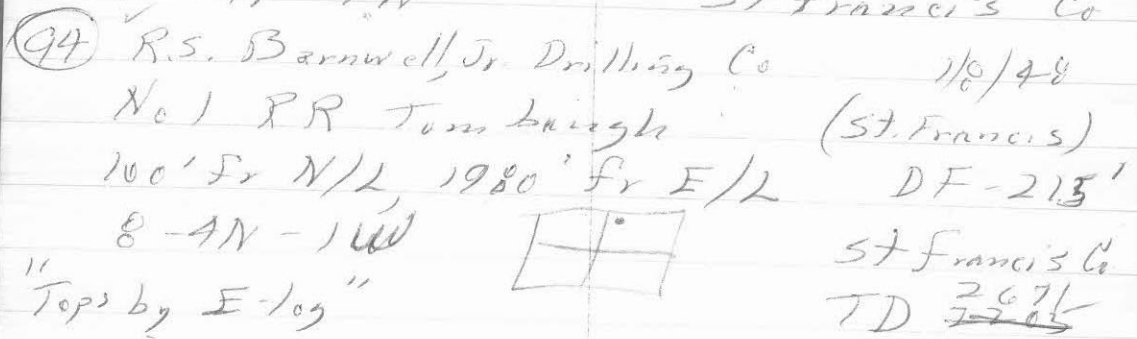 St Francis Co
94 R.S. Barnwell, Jr. Drilling Co 1/8/48
No 1 RR Tombaugh (St. Francis)
100' fr N/L 1980' fr E/L DF-215'
8-4N-1W St Francis Co
"Tops by E-log" TD 2671